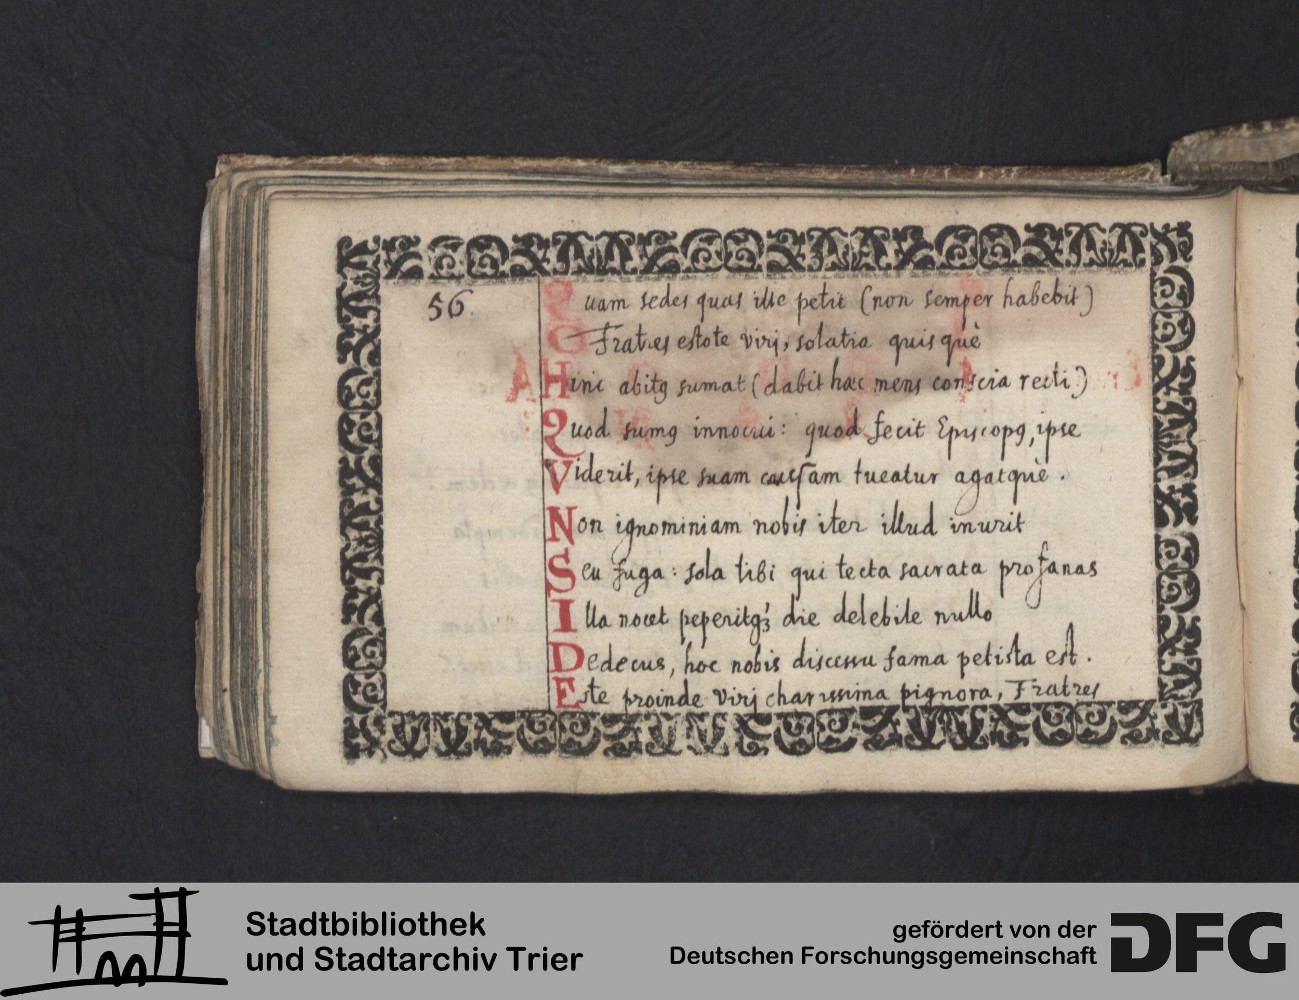 56.
Quam sedes quas ille petit (non semper habebit)
O Fratres estote virj, solatia quisquè
Hinc abitꝯ sumat (dabit hæc mens conscia recti)
Quod sumꝯ innocui: quod fecit Episcopꝯ, ipse
Viderit, ipse suam caussam tueatur agatquè.
Non ignominiam nobis iter illud inurit
Seu fuga: sola tibi qui tecta sacrata profanas
Illa nocet peperitqꝫ die delebile nullo
Dedecus, hoc nobis discessu fama petista est.
Este proinde virj charissima pignora, Fratres
Stadtbibliothek
und Stadtarchiv Trier
gefördert von der
Deutschen Forschungsgemeinschaft
DFG